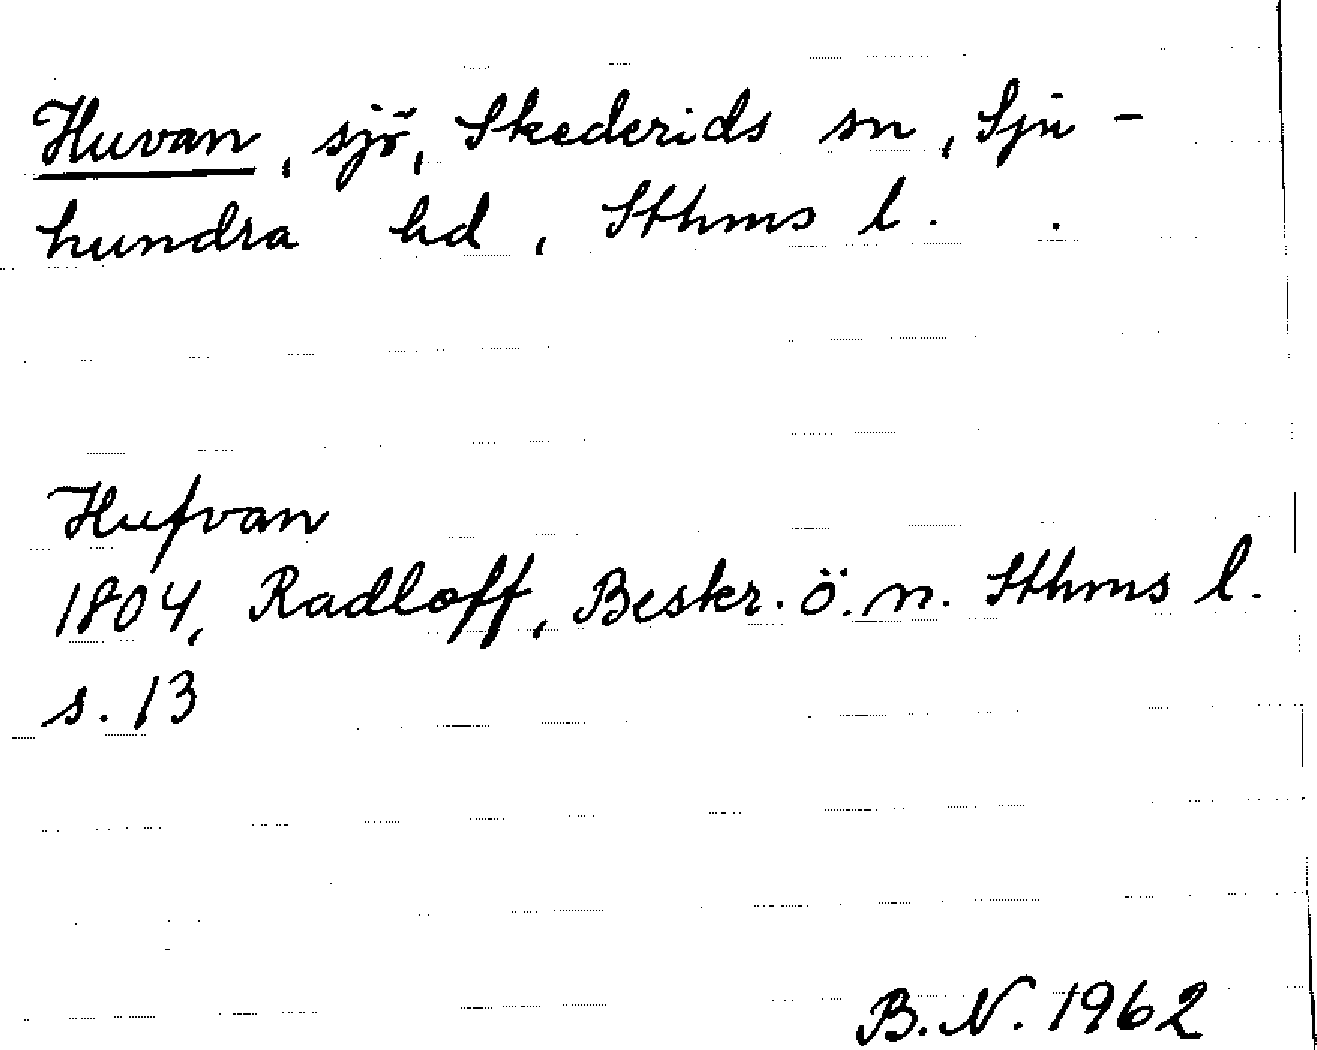 Huvan, sjö, Skederids sn, Sju-
hundra hd, Sthms l.
Hufvan
1804, Radloff, Beskr. ö. n. Sthms l.
s. 13
B. N. 1962